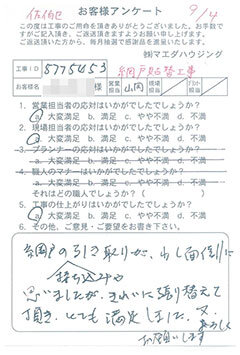 佐伯区
お客様アンケート
9/4
この度は工事のご用命を頂きありがとうございました。お手数で
すがご返送頂きますようお願い申し上げます。
ご返送頂いた方から、毎月抽選で粗品を進呈いたします。
㈱マエダハウジング
工事ID 5775453 網戸貼替工事
お客様名 様 営業担当 山岡 現場担当 プランナー担当
1. 営業担当者の応対はいかがでしたでしょうか?
a. 大変満足 b. 満足 c. やや不満 d. 不満
2. 現場担当者の応対はいかがでしたでしょうか?
a. 大変満足 b. 満足 c. やや不満 d. 不満
3. プランナーの応対はいかがでしたでしょうか?
a. 大変満足 b. 満足 c. やや不満 d. 不満
4. 職人のマナーはいかがでしたでしょうか?
a. 大変満足 b. 満足 c. やや不満 d. 不満
それはどの職種でしょうか?( )
5. 工事の仕上がりはいかがでしたでしょうか?
a. 大変満足 b. 満足 c. やや不満 d. 不満
6. その他、ご意見・ご要望をお書き下さい。
網戸の引き取りが、少し面倒に
持ち込みや
思いましたが、きれいに張り替えて
頂き、とても満足しました。又
お願いします